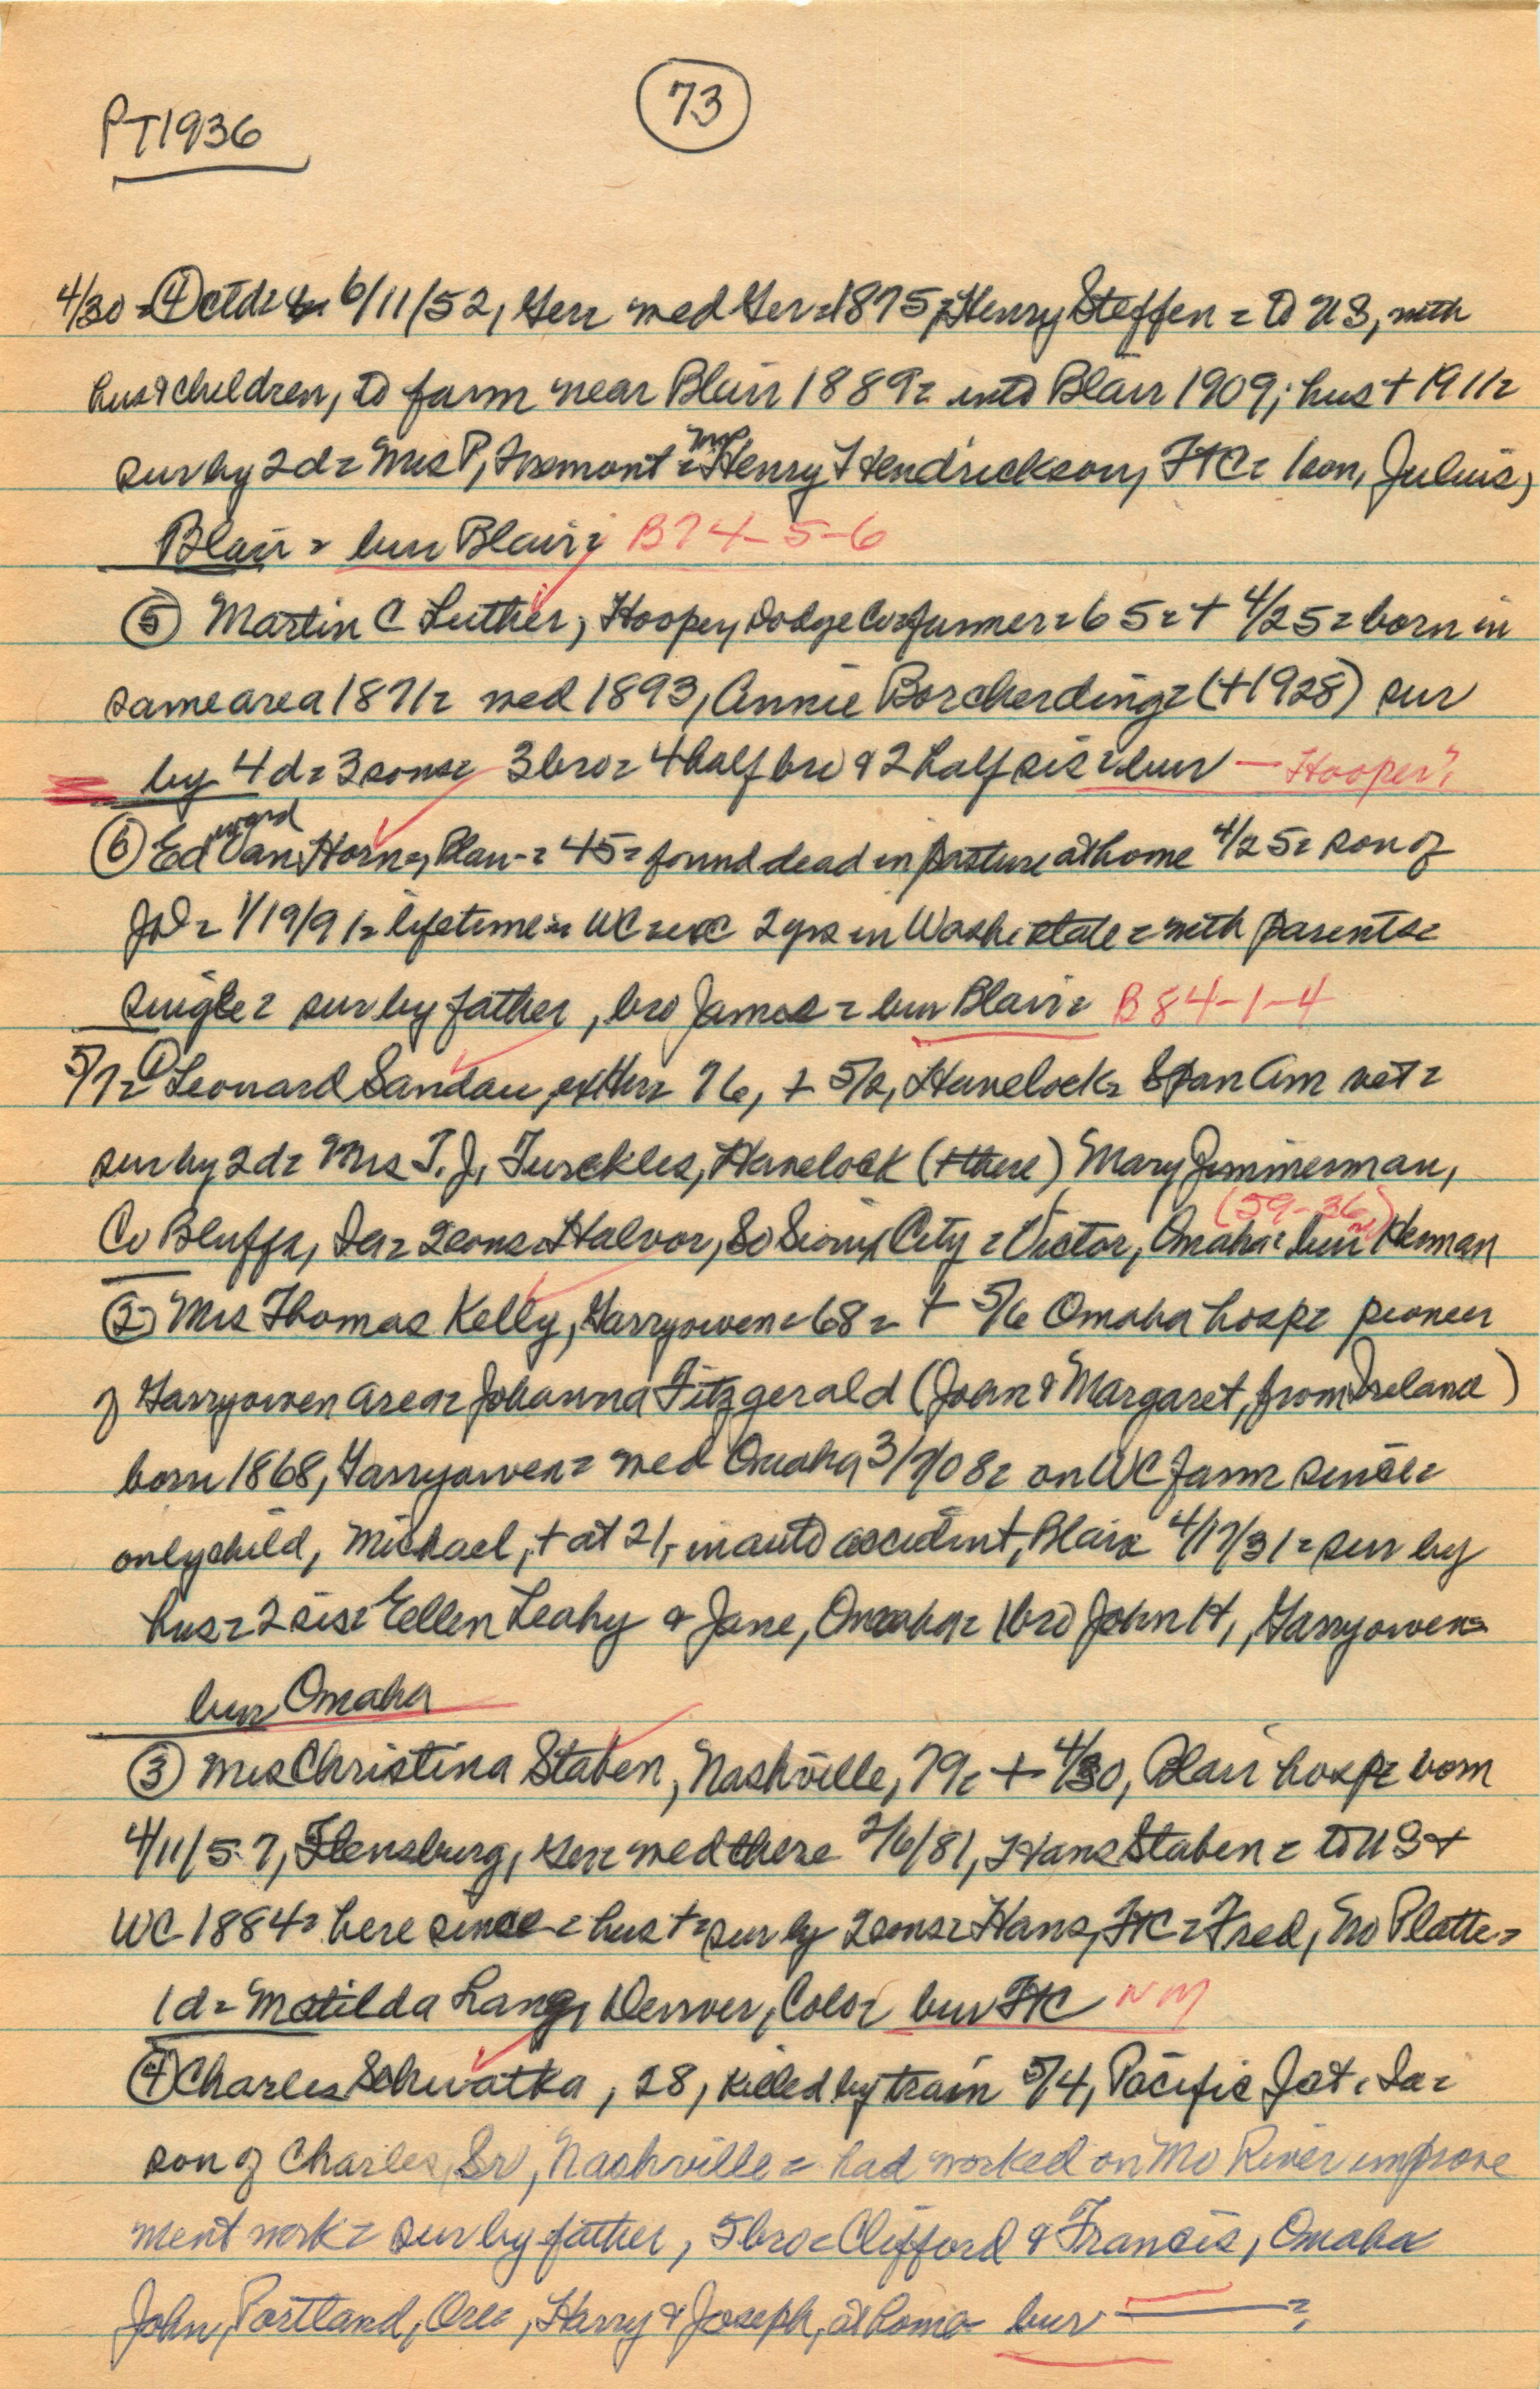 73
PT1936
4/30 = ④ ctd = 6/11/52, Ger = wed Ger = 1875, Henry Steffen = to US, with
hus & children, to farm near Blair 1889 = into Blair 1909; hus + 1911 =
sur by 2d = Mrs P, Fremont = Mrs Henry Hendrickson, FtC = 1 son, Julius,
Blair = bur Blair = B74-5-6
⑤ Martin C Luther, Hooper, Dodge Co = farmer = 65 = + 4/25 = born in
same area 1871 = wed 1893, Annie Borcherding = (+1928) sur
by 4d = 3 sons = 3 bro = 4 half bro & 2 half sis = bur — Hooper?
⑥ Edward Van Horn, Blair = 45 = found dead in pasture at home 4/25 = son of
JD = 1/19/91 = lifetime in WC = exc 2 yrs in Wash state = with parents =
single = sur by father, bro James = bur Blair = B84-1-4
5/7 = ① Leonard Sandau, ex Her = 76, + 5/2, Havelock = Span Am vet =
sur by 2d = Mrs T. J. Turckles, Havelock (+ there) Mary Zimmerman,
Co Bluffs, Ia = 2 sons = Halvor, So Sioux City = Victor, Omaha = bur Herman (59-36)
② Mrs Thomas Kelly, Garryowen = 68 = + 5/6 Omaha hosp = pioneer
of Garryowen area = Johanna Fitzgerald (John & Margaret, from Ireland)
born 1868, Garryowen = wed Omaha 3/7/08 = on WC farm since =
only child, Michael, + at 21, in auto accident, Blair 4/17/31 = sur by
hus = 2 sis = Ellen Leahy & Jane, Omaha = 1 bro John H, Garryowen =
bur Omaha
③ Mrs Christina Staben, Nashville, 79 = + 4/30, Blair hosp = born
4/11/57, Flensburg, Ger = wed there 2/6/81, Hans Staben = to US +
WC 1884 = here since = hus + = sur by 2 sons = Hans, FtC = Fred, No Platte =
1d = Matilda Lang, Denver, Colo = bur FtC NM
④ Charles Schwatka, 28, killed by train 5/4, Pacific Jct, Ia =
son of Charles, Sr, Nashville = had worked on Mo River improve
ment work = sur by father, 5 bro = Clifford & Francis, Omaha
John, Portland, Ore, Harry & Joseph, at home = bur — =,